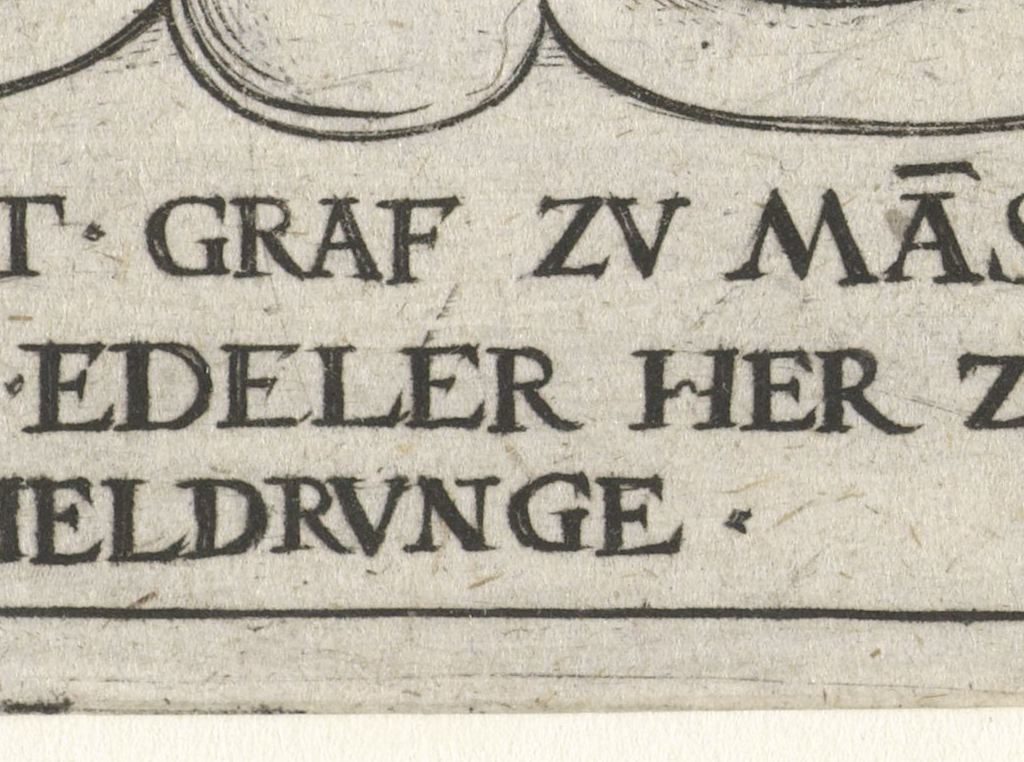 T · GRAF ZV MĀS
· EDELER HER Z
HELDRVNGE ·